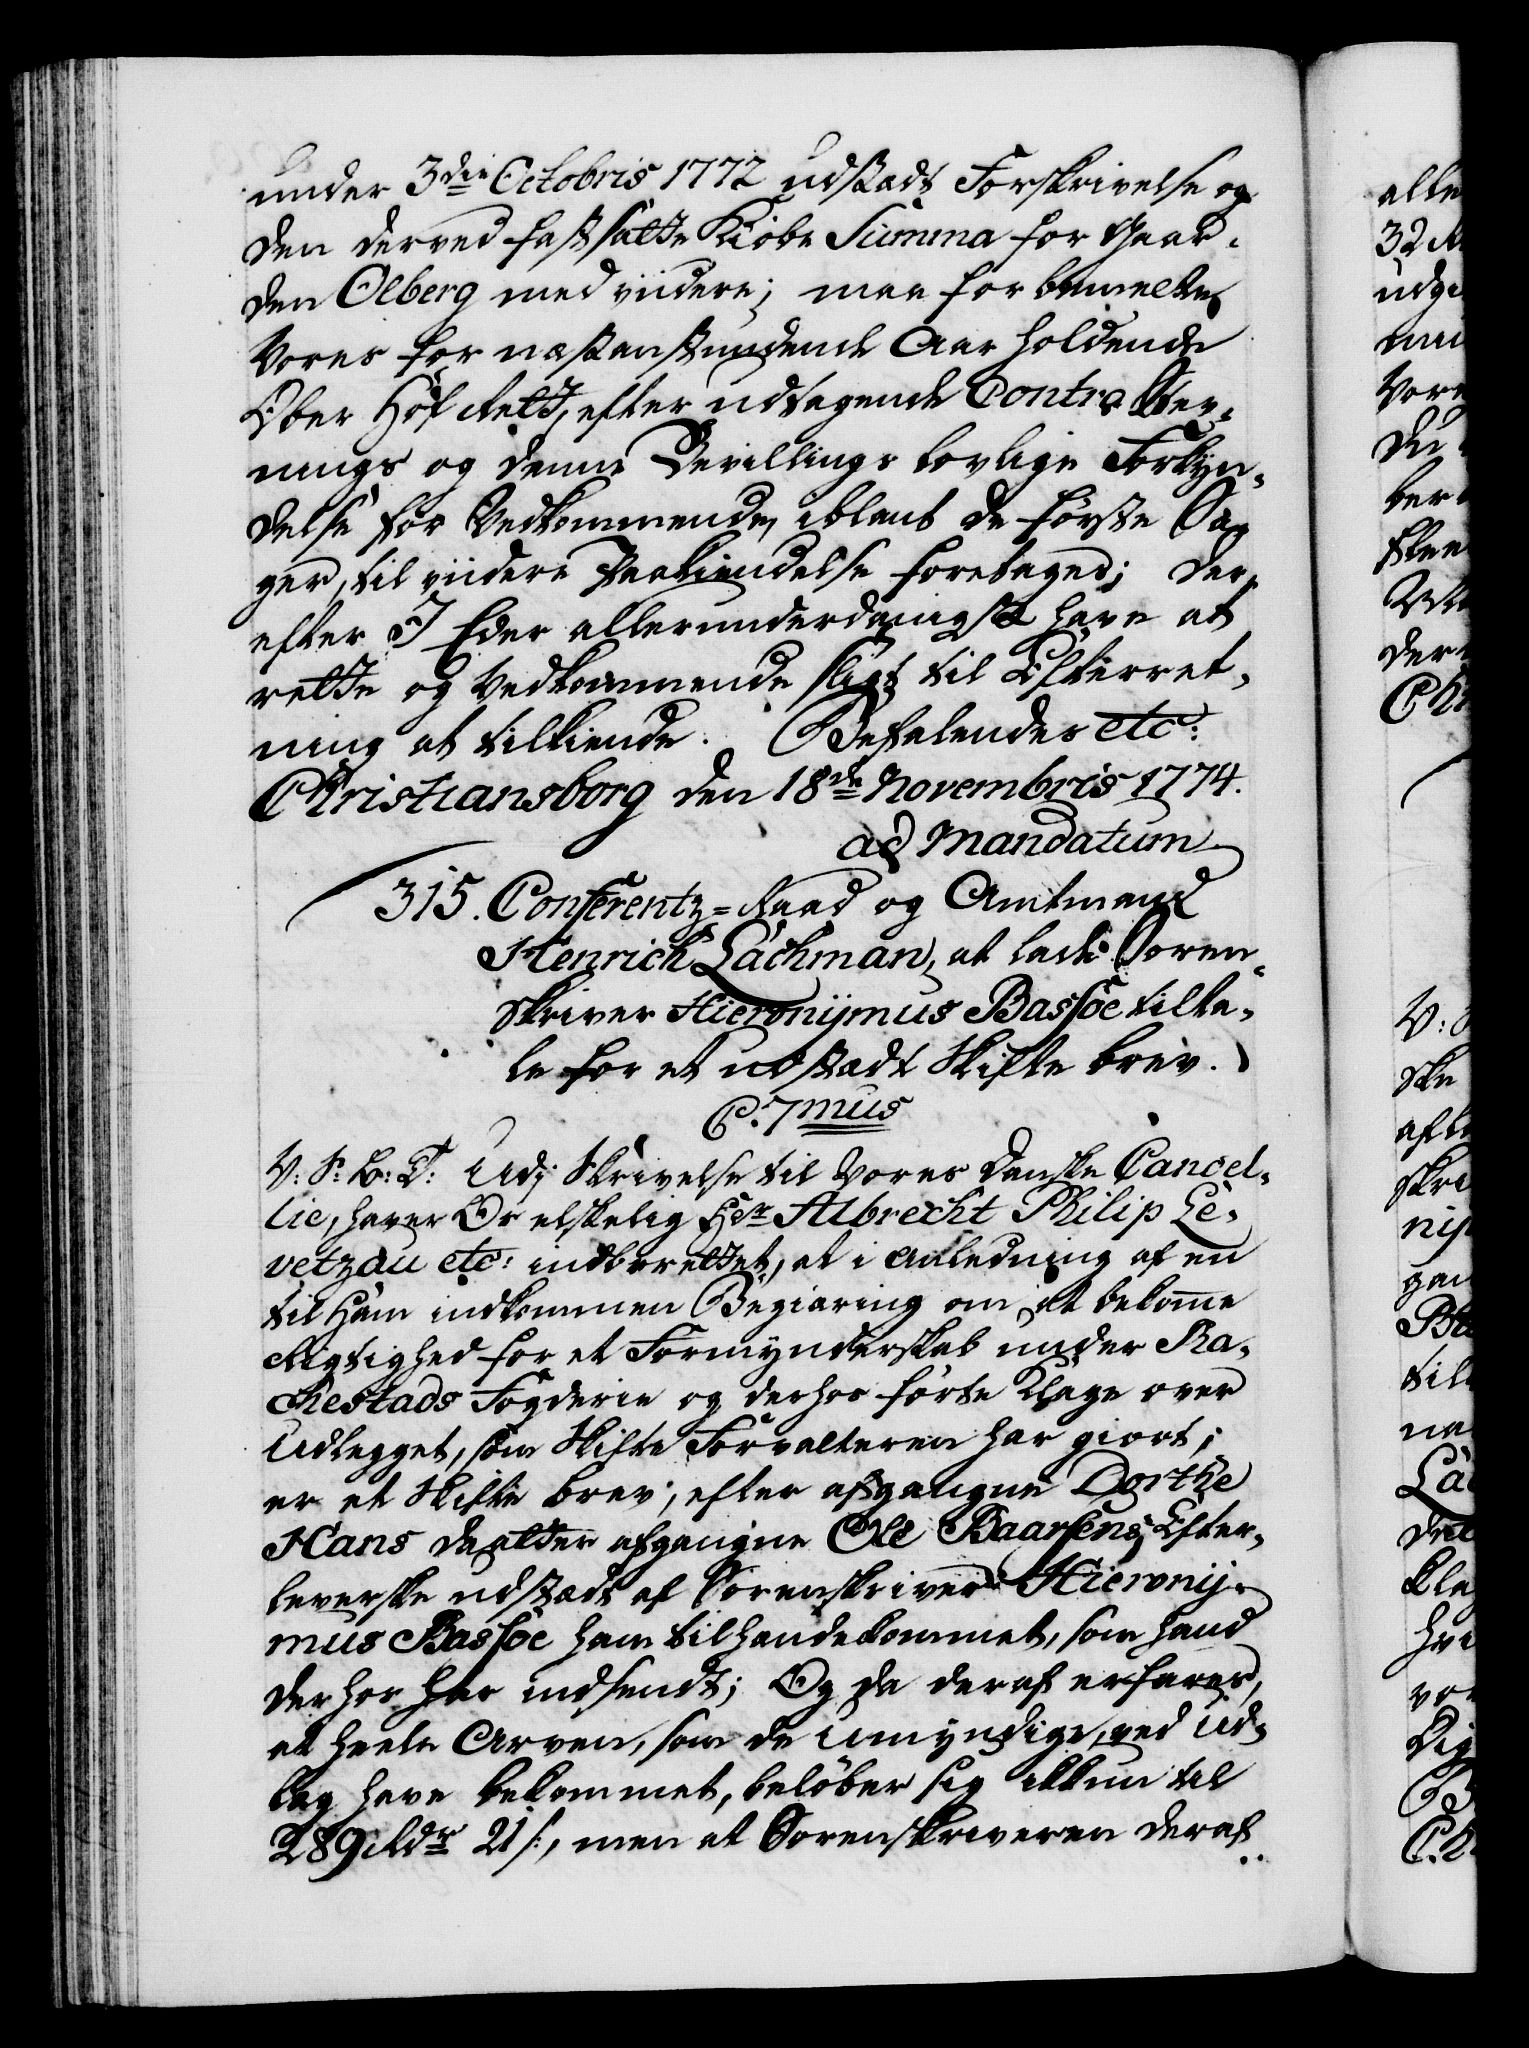 under 3die Octobris 1772 udstædt Forskrivelse og
den derved fastsatte Kiöbe Summa for Gaar-
den Olberg med viidere; maa for bemeldte
Vores for næstanstundende Aar holdende
Ober Hof Rett, efter udtagende Contra Stev-
nings og denne Bevillings lovlige Forkyn-
delse for Vedkommende, iblant de förste Sa-
ger, til viidere Paakiendelse foretages; Der-
efter I Eder allerunderdanigst have at
rette og Vedkommende sligt til Efterret-
ning at tilkiende. Befalendes etc:
Christiansborg den 18de Novembris 1774.
ad Mandatum
315. Conferentz-Raad og Amtmand
Henrich Lachman, at lade Soren-
skriver Hieronijmus Bassöe tilta-
le for et udstædt Skifte brev.
C. 7mus
V: S: B: T: Udj Skrivelse til Vores Danske Cancel-
lie, haver Os elskelig Hr Albrecht Philip Le-
vetzau etc: indberettet, at i Anledning af en
til Ham indkommen Begiæring om at bekomme
Rigtighed for et Formynderskab under Ra-
chestads Fogderie og derhos förte Klage over
Udlegget, som Skifte Forvalteren har giort,
er et Skifte brev, efter afgangne Dorthe
Hans datter afgangne Ole Baarsens Efter-
leverske udstædt af Sorenskriver Hieronij-
mus Bassöe ham tilhændekommet, som hand
derhos har indsendt; Og da deraf erfares,
at heele Arven, som de Umyndige, ved Ud-
læg have bekommet, belöber sig ikkun til
289 Rdr 21 s:, men at Sorenskriveren deraf